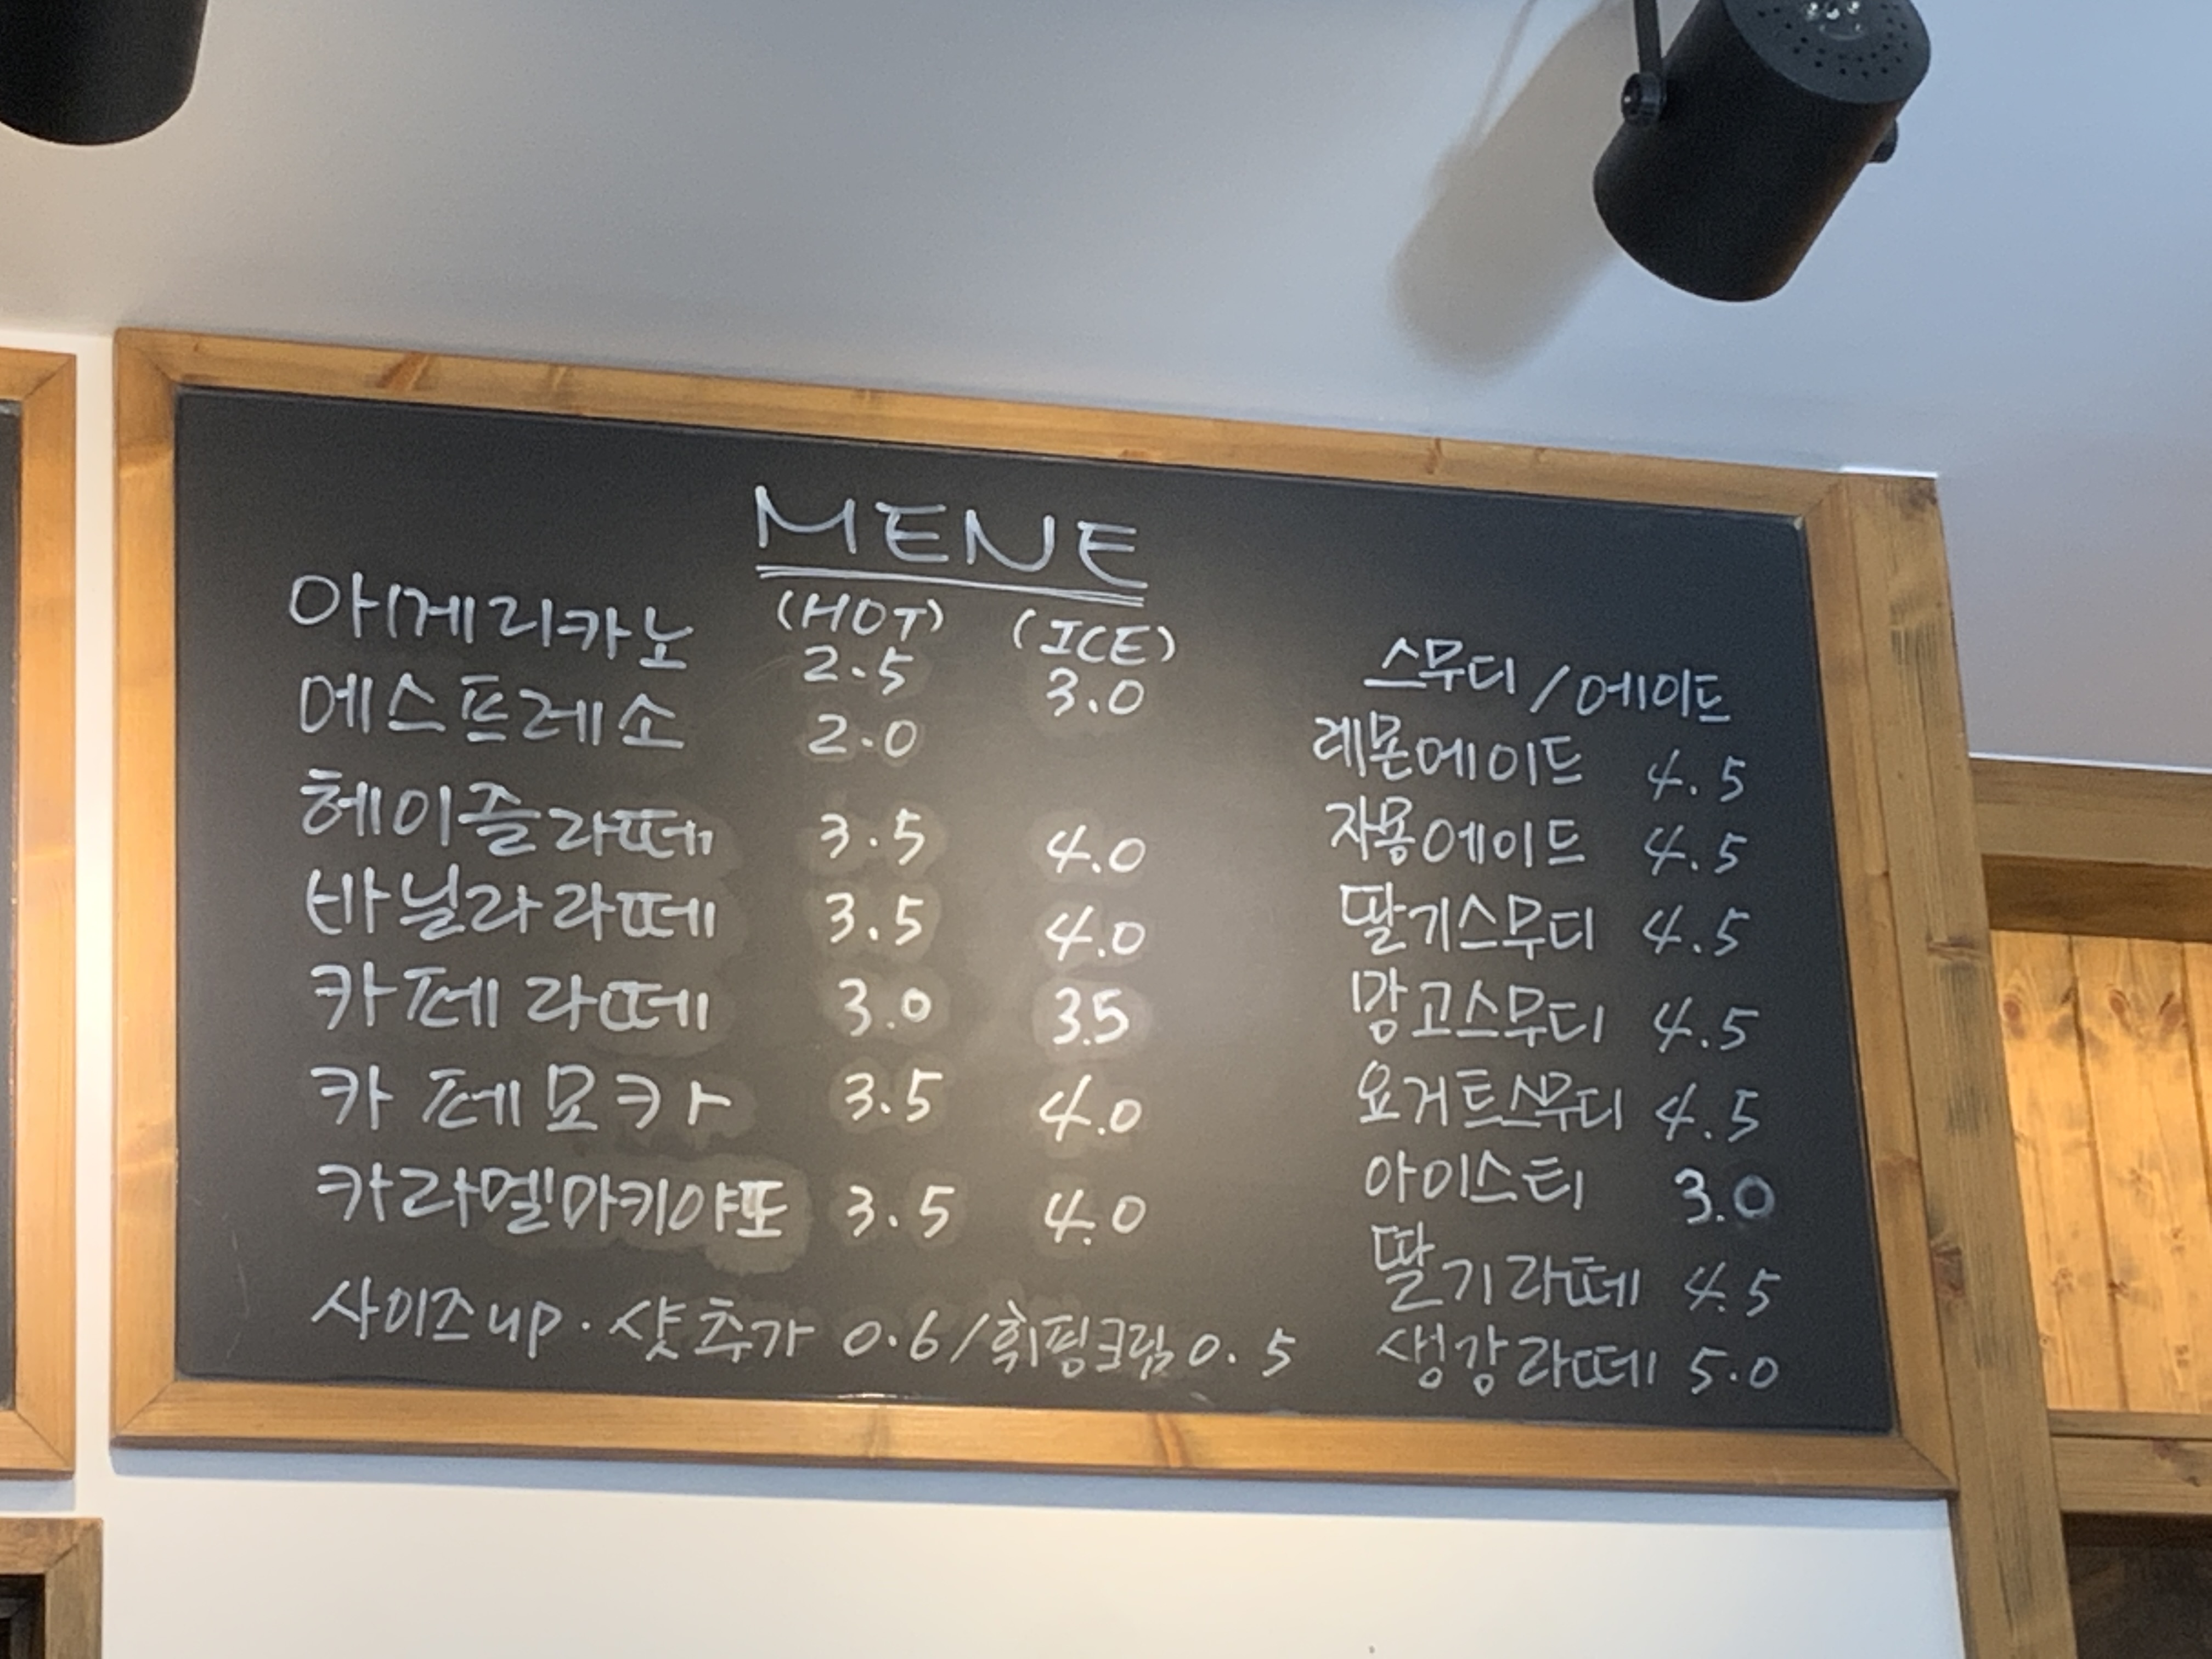 MENE
(HOT) (ICE)
아메리카노 2.5 3.0
에스프레소 2.0
헤이즐라떼 3.5 4.0
바닐라라떼 3.5 4.0
카페라떼 3.0 3.5
카페모카 3.5 4.0
카라멜마키야또 3.5 4.0
사이즈up · 샷추가 0.6 / 휘핑크림 0.5
스무디 / 에이드
레몬에이드 4.5
자몽에이드 4.5
딸기스무디 4.5
망고스무디 4.5
요거트스무디 4.5
아이스티 3.0
딸기라떼 4.5
생강라떼 5.0